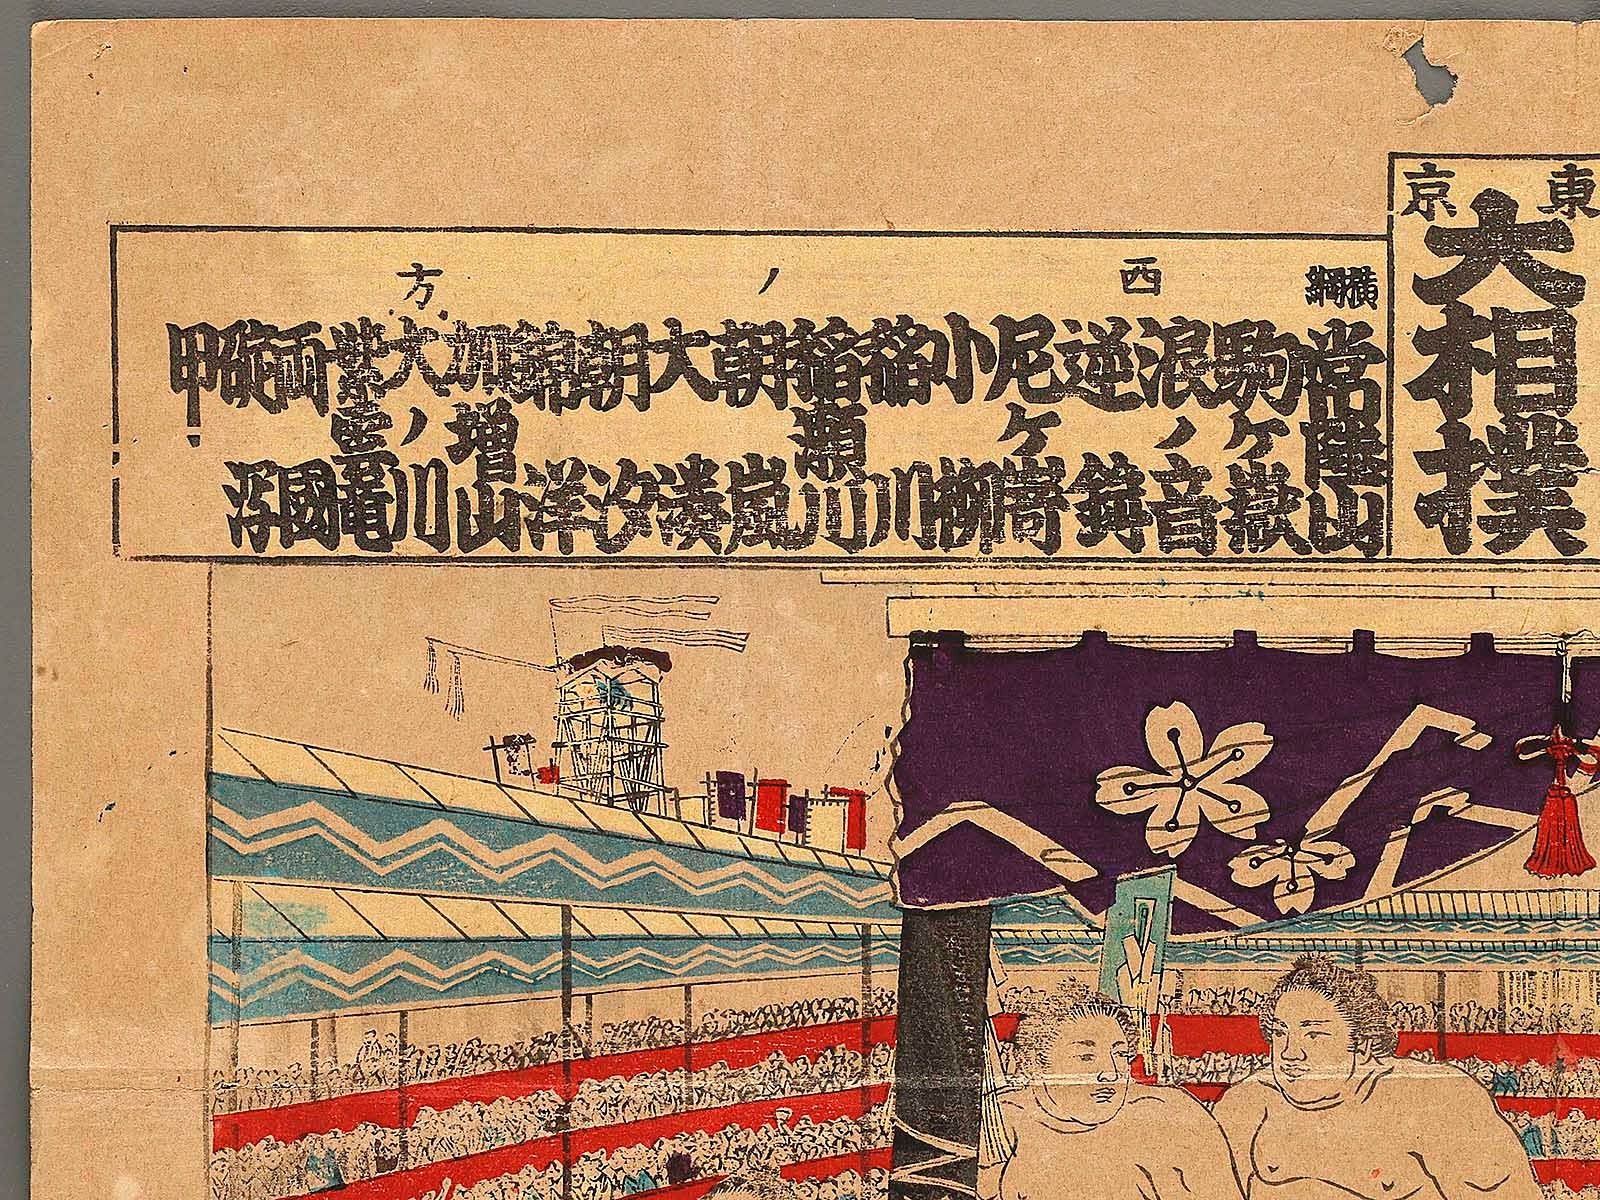 東京
大相撲
横綱
西ノ方
常陸山
駒ヶ嶽
浪ノ音
逆鉾
尾ヶ嵜
小柳
稲川
稲瀬川
朝嵐
大湊
朝汐
錦洋
加増山
大ノ川
紫雲竜
両國
碇
甲